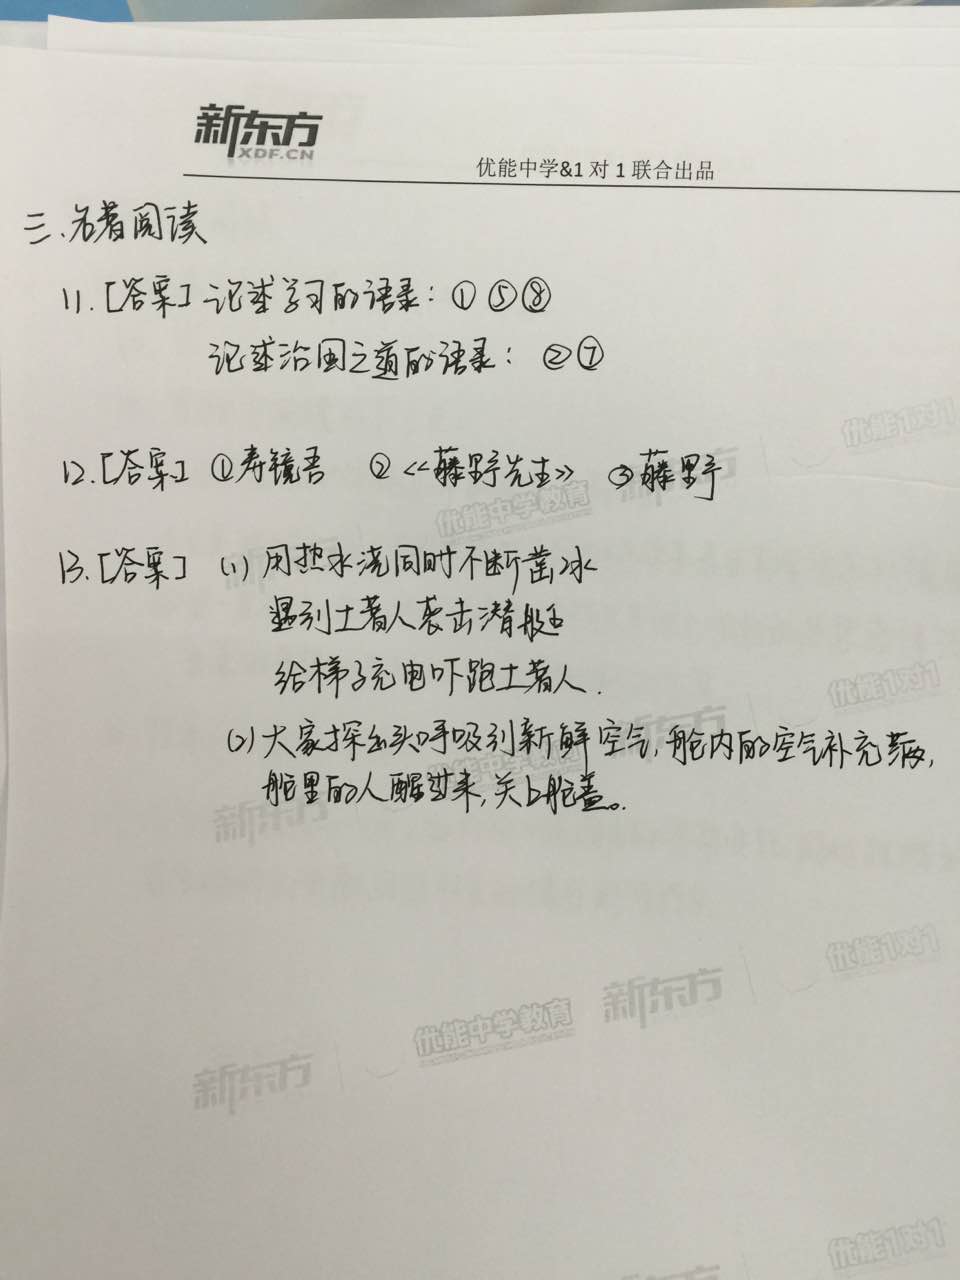 新东方
XDF.CN
优能中学&1 对 1 联合出品
三.名著阅读
11.[答案] 记述学习的语录：①⑤⑧
记述治国之道的语录：②⑦
12.[答案] ①寿镜吾 ②《藤野先生》 ③藤野
13.[答案] (1) 用热水浇同时不断凿冰
遇到土著人袭击潜艇
给梯子充电吓跑土著人.
(2) 大家探出头呼吸到新鲜空气,舱内的空气补充
舱里的人醒过来,关上舱盖。
优能1对1
优能中学教育
新东方
优能1对1
新东方
优能中学教育
新东方
优能1对1
新东方
优能中学教育
新东方
优能1对1